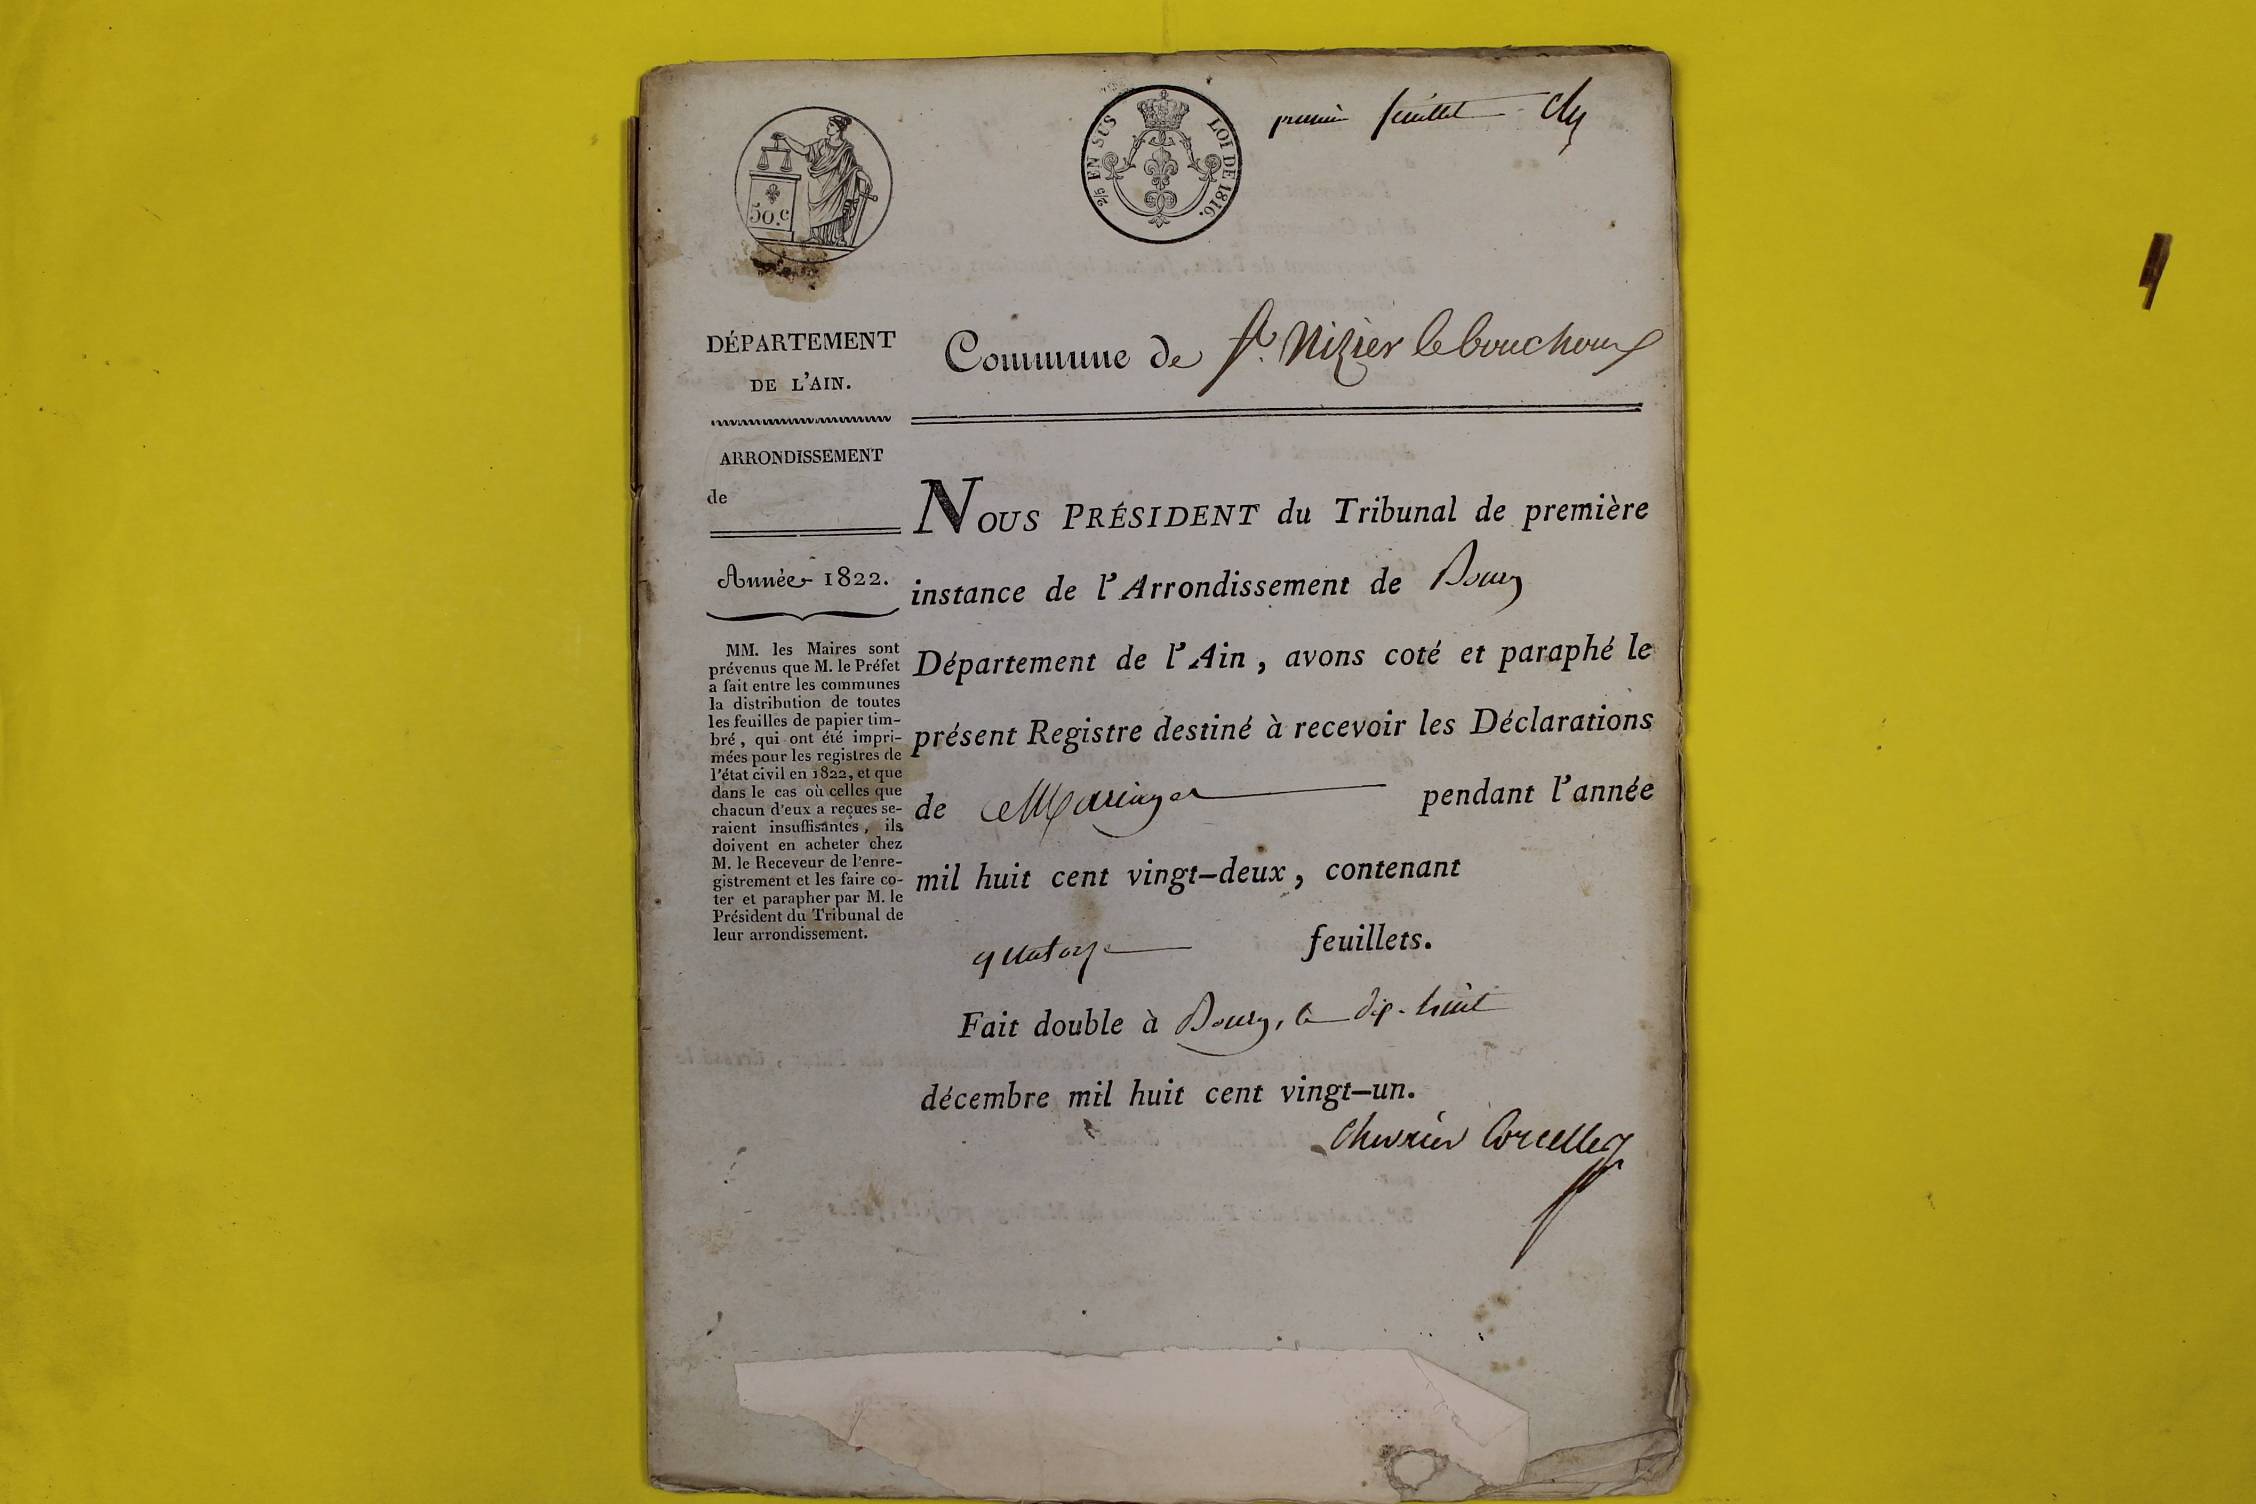 50.c
2/5 EN SUS LOI DE 1816.
premier feuillet
DÉPARTEMENT
DE L'AIN.
ARRONDISSEMENT
de
Année 1822.
MM. les Maires sont
prévenus que M. le Préfet
a fait entre les communes
la distribution de toutes
les feuilles de papier tim-
bré, qui ont été impri-
mées pour les registres de
l'état civil en 1822, et que
dans le cas où celles que
chacun d'eux a reçues se-
raient insuffisantes, ils
doivent en acheter chez
M. le Receveur de l'enre-
gistrement et les faire co-
ter et parapher par M. le
Président du Tribunal de
leur arrondissement.
Commune de St. Nizier le bouchoux
NOUS PRÉSIDENT du Tribunal de première
instance de l'Arrondissement de Bourg
Département de l'Ain, avons coté et paraphé le
présent Registre destiné à recevoir les Déclarations
de Mariages pendant l'année
mil huit cent vingt-deux, contenant
quatorze feuillets.
Fait double à Bourg, le dix-huit
décembre mil huit cent vingt-un.
Chevrier Corcelles